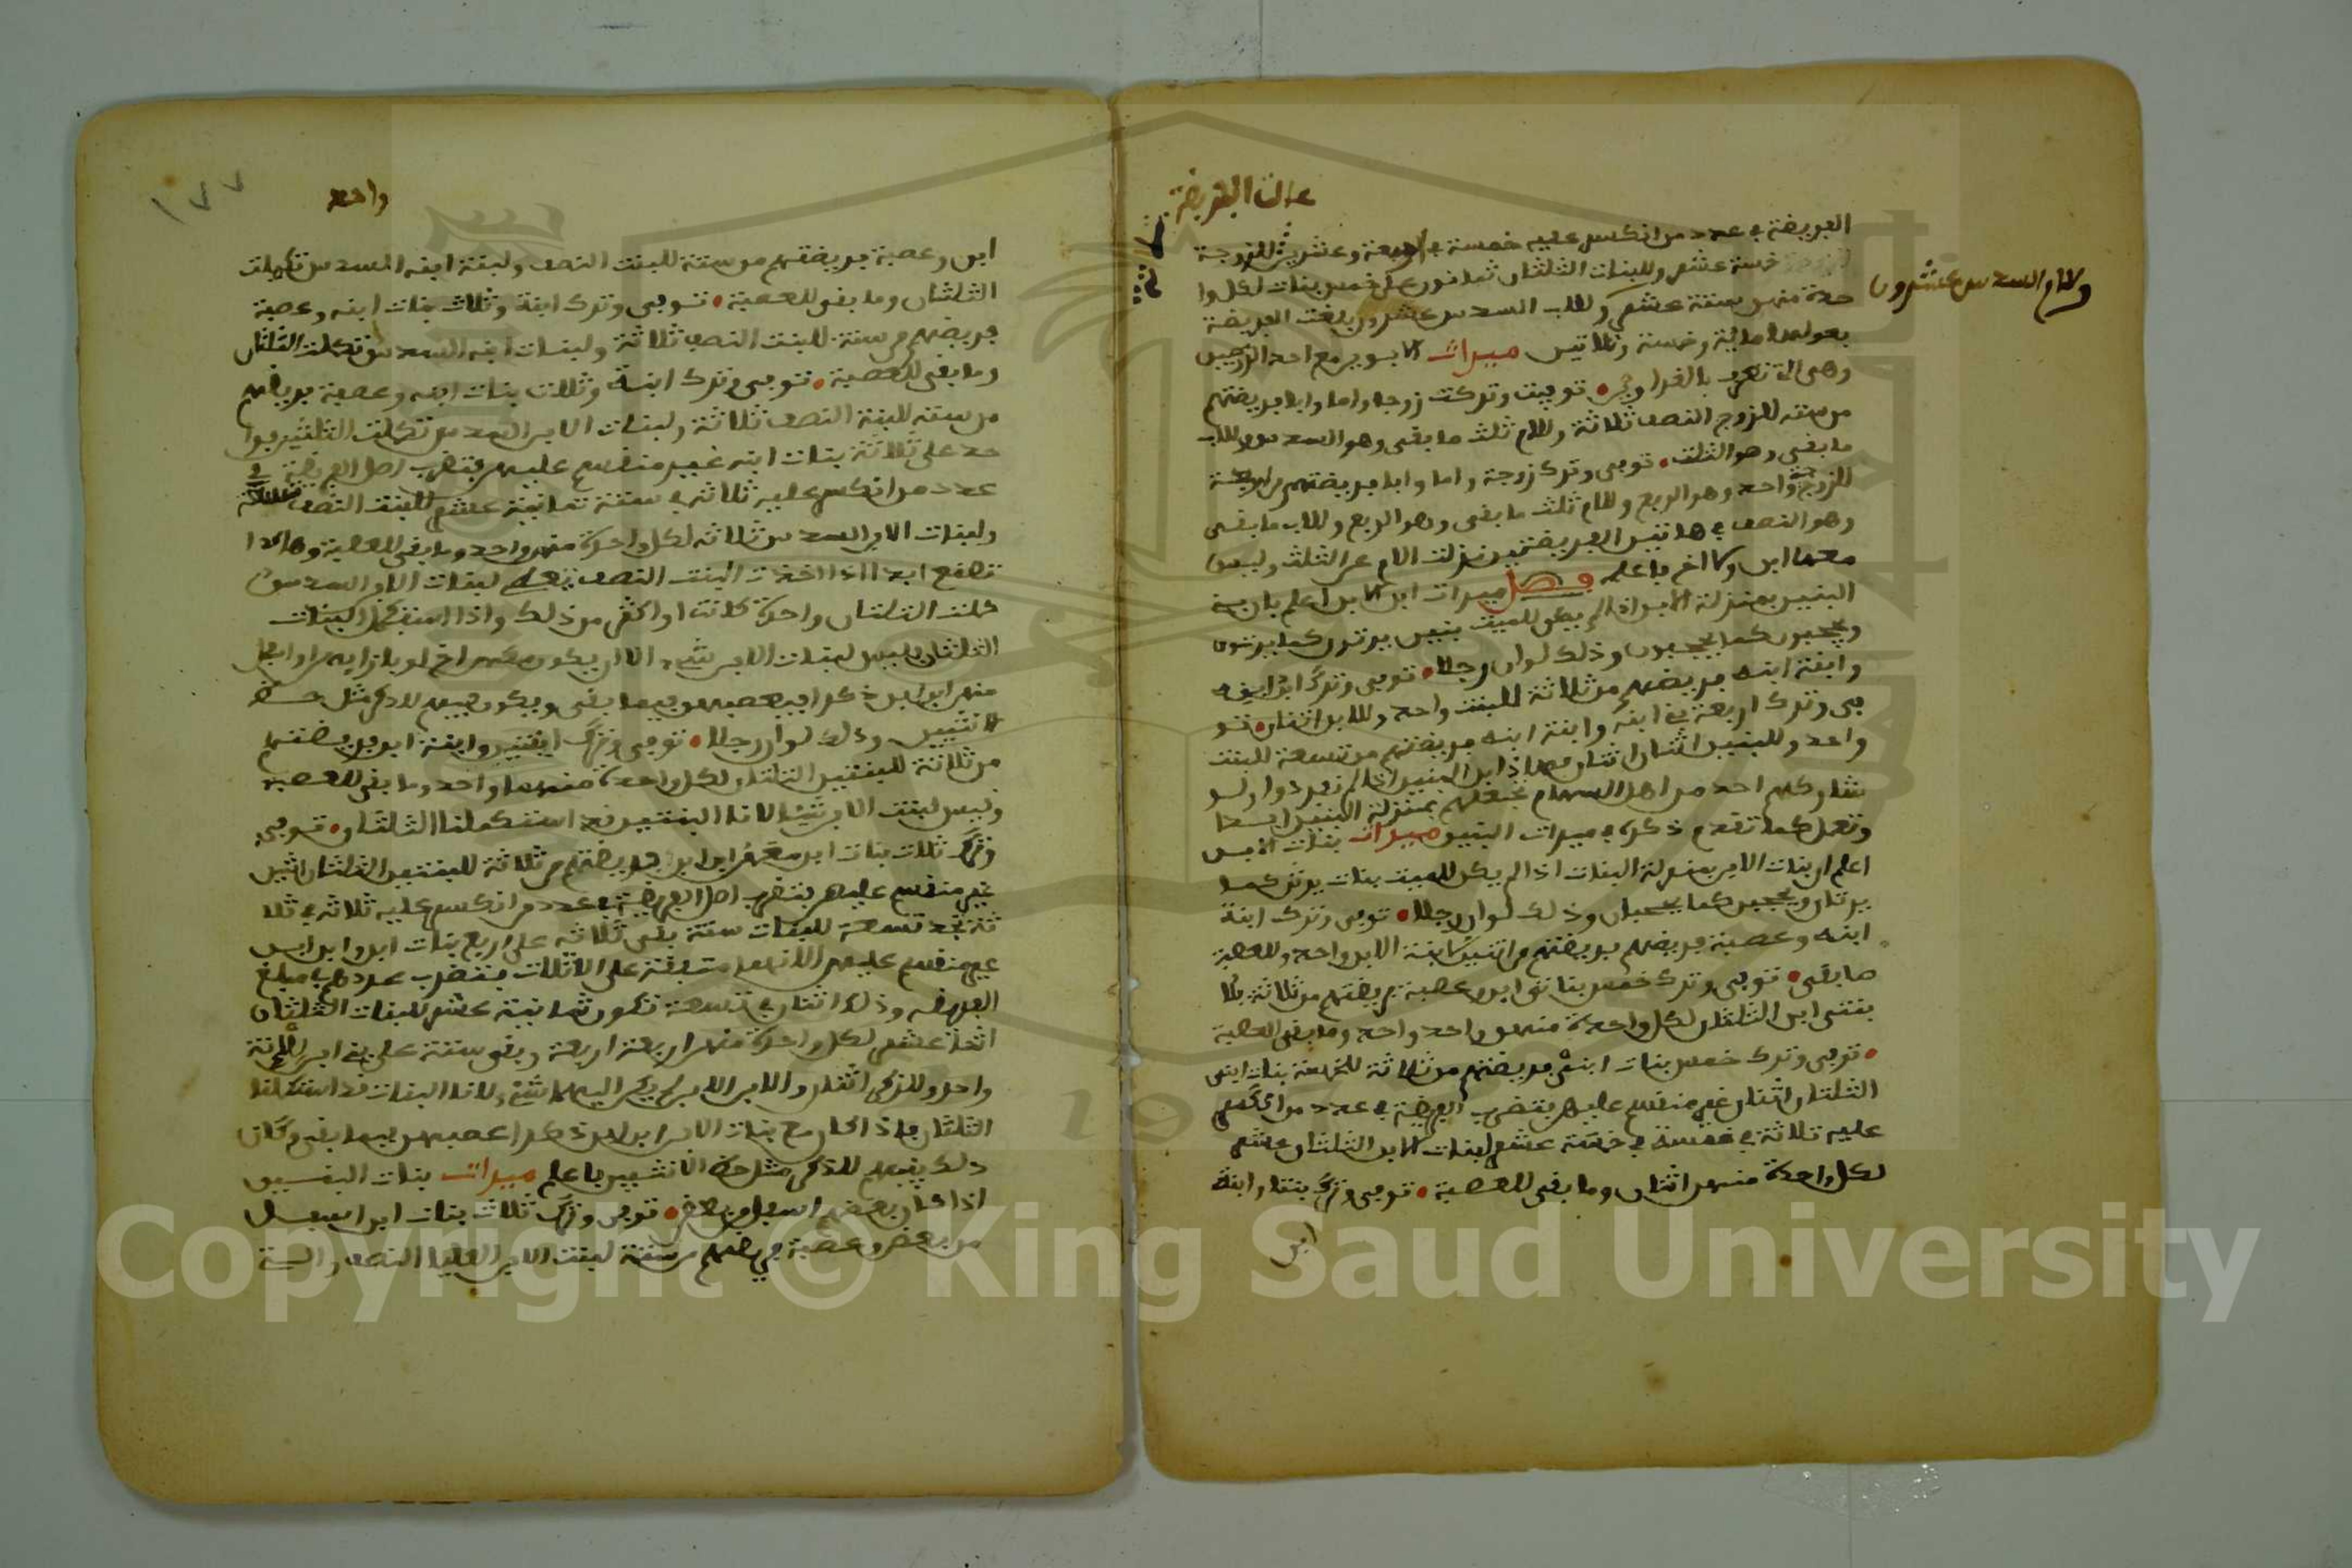 عالت الفريضة
الفريضة في عدد من انكسر عليه خمسة في اربعة وعشرين للزوجة
خمسة عشر وللبنات الثلثان ثمانون على خمس بنات لكل وا
حدة منهن ستة عشر وللاب السدس عشرون بلغت الفريضة
وللام السدس عشرون
بعولها ماية وخمسة وثلاثين ميراث الابوين مع احد الزوجين
وهي التي تعرف بالغراوين توفيت وتركت زوجا واما وابا فريضتهم
من ستة للزوج النصف ثلاثة وللام ثلث ما بقي وهو السدس وللاب
ما بقي وهو الثلث توفي وترك زوجة واما وابا فريضتهم من اربعة
للزوجة واحد وهو الربع وللام ثلث ما بقي وهو الربع وللاب ما بقي
وهو النصف في هاتين الفريضتين نزلت الام عن الثلث وليس
معها ابن ولا اخ فاعلم فصل ميراث ابن الابن اعلم بان بني
البنين بمنزلة الابن اذا لم يكن للميت بنين يرثون كما يرثون
ويحجبون كما يحجبون وذلك لوان رجلا توفي وترك ابن ابنه
وابنة ابنه فريضتهم من ثلاثة للبنت واحد وللابن اثنان تو
في وترك اربعة بني ابنه وابنة ابنه فريضتهم من تسعة للبنت
واحد وللبنين اثنان اثنان
شاركهم احد من اهل السهام فجعلهم بمنزلة البنين ابدا
وتعمل كما تقدم ذكره في ميراث البنين ميراث بنات الابن
اعلم ان بنات الابن بمنزلة البنات اذا لم يكن للميت بنات يرثن كما
يرثن ويحجبن كما يحجبن وذلك لوان رجلا توفي وترك ابنة
ابنه وعصبة فريضتهم من اثنين لابنة الابن واحد وللعصبة
ما بقي توفي وترك خمس بناتي ابن وعصبة فريضتهم من ثلاثة
بنتي ابن الثلثان لكل واحدة منهن واحد واحد وما بقي للعصبة
توفي وترك خمس بنات ابنه فريضتهم من ثلاثة للخمسة بنات ابنه
الثلثان اثنان غير منقسم عليهن فتضرب الفريضة في عدد من انكسر
عليه ثلاثة في خمسة في خمسة عشر لبنات الابن الثلثان عشر
لكل واحدة منهن اثنان وما بقي للعصبة توفي وترك بنتا وابنة
ابن
واحد
١٧٧
ابن وعصبة فريضتهم من ستة للبنت النصف ولبنة ابنه السدس تكملت
الثلثان وما بقي للعصبة توفي وترك ابنة وثلاث بنات ابنه وعصبة
فريضتهم من ستة للبنت النصف ثلاثة ولبنات ابنه السدس تكملت الثلثان
وما بقي للعصبة توفي وترك ابنة وثلاث بنات ابنه وعصبة فريضتهم
من ستة للبنة النصف ثلاثة ولبنات الابن السدس تكملت الثلثين وا
حد على ثلاثة بنات ابنه غير منقسم عليهن فتضرب اصل الفريضة في
عدد من انكسر عليه ثلاثة في ستة ثمانية عشر للبنت النصف
ولبنات الابن السدس ثلاثة لكل واحدة منهن واحد وما بقي للعصبة وهاكذا
تصنع ابدا اذا اخذت البنت النصف لبنات الابن السدس
كملت الثلثان واحدة كانت او اكثر من ذلك واذا استكمل البنات
الثلثان فليس لبنات الابن شيء الا ان يكون معهن اخ لو بازايهن او اسفل
منهن ابن ابن ذكرا فيعصبهن فيما بقي ويكون بينهم للذكر مثل حظ
الانثيين وذلك لوان رجلا توفي وترك ابنتين وابنة ابن فريضتهم
من ثلاثة للبنتين الثلثان لكل واحدة منهما واحد وما بقي للعصبة
وليس لبنت الابن شيئا لان البنتين قد استكملتا الثلثان توفي
وترك ثلاث بنات ابن معهن ابن ابن فريضتهم من ثلاثة للبنتين الثلثان اثنين
غير منقسم عليهن فتضرب اصل الفريضة في عدد من انكسر عليه ثلاثة في ثلا
ثة تجد تسعة للبنات ستة بقي ثلاثة على اربع بنات ابن وابن ابن
غير منقسم عليهن
الفريضة وذلك اثنان في تسعة تكون ثمانية عشر للبنات الثلثان
اثنا عشر لكل واحدة منهن اربعة اربعة وبقي ستة على بني ابن
واحد وللذكر اثنان لان البنات قد استكملتا
الثلثان فاذا كان مع بنات الابن ابن ابن ذكرا عصبهن فيما بقي وكان
ذلك بينهم للذكر مثل حظ الانثيين فاعلم ميراث بنات البنين
اذا كان بعضهم اسفل من بعض توفي وترك ثلاث بنات ابن اسفل
من بعض وعصبة فريضتهم من ستة لبنت الابن العليا النصف
Copyright © King Saud University